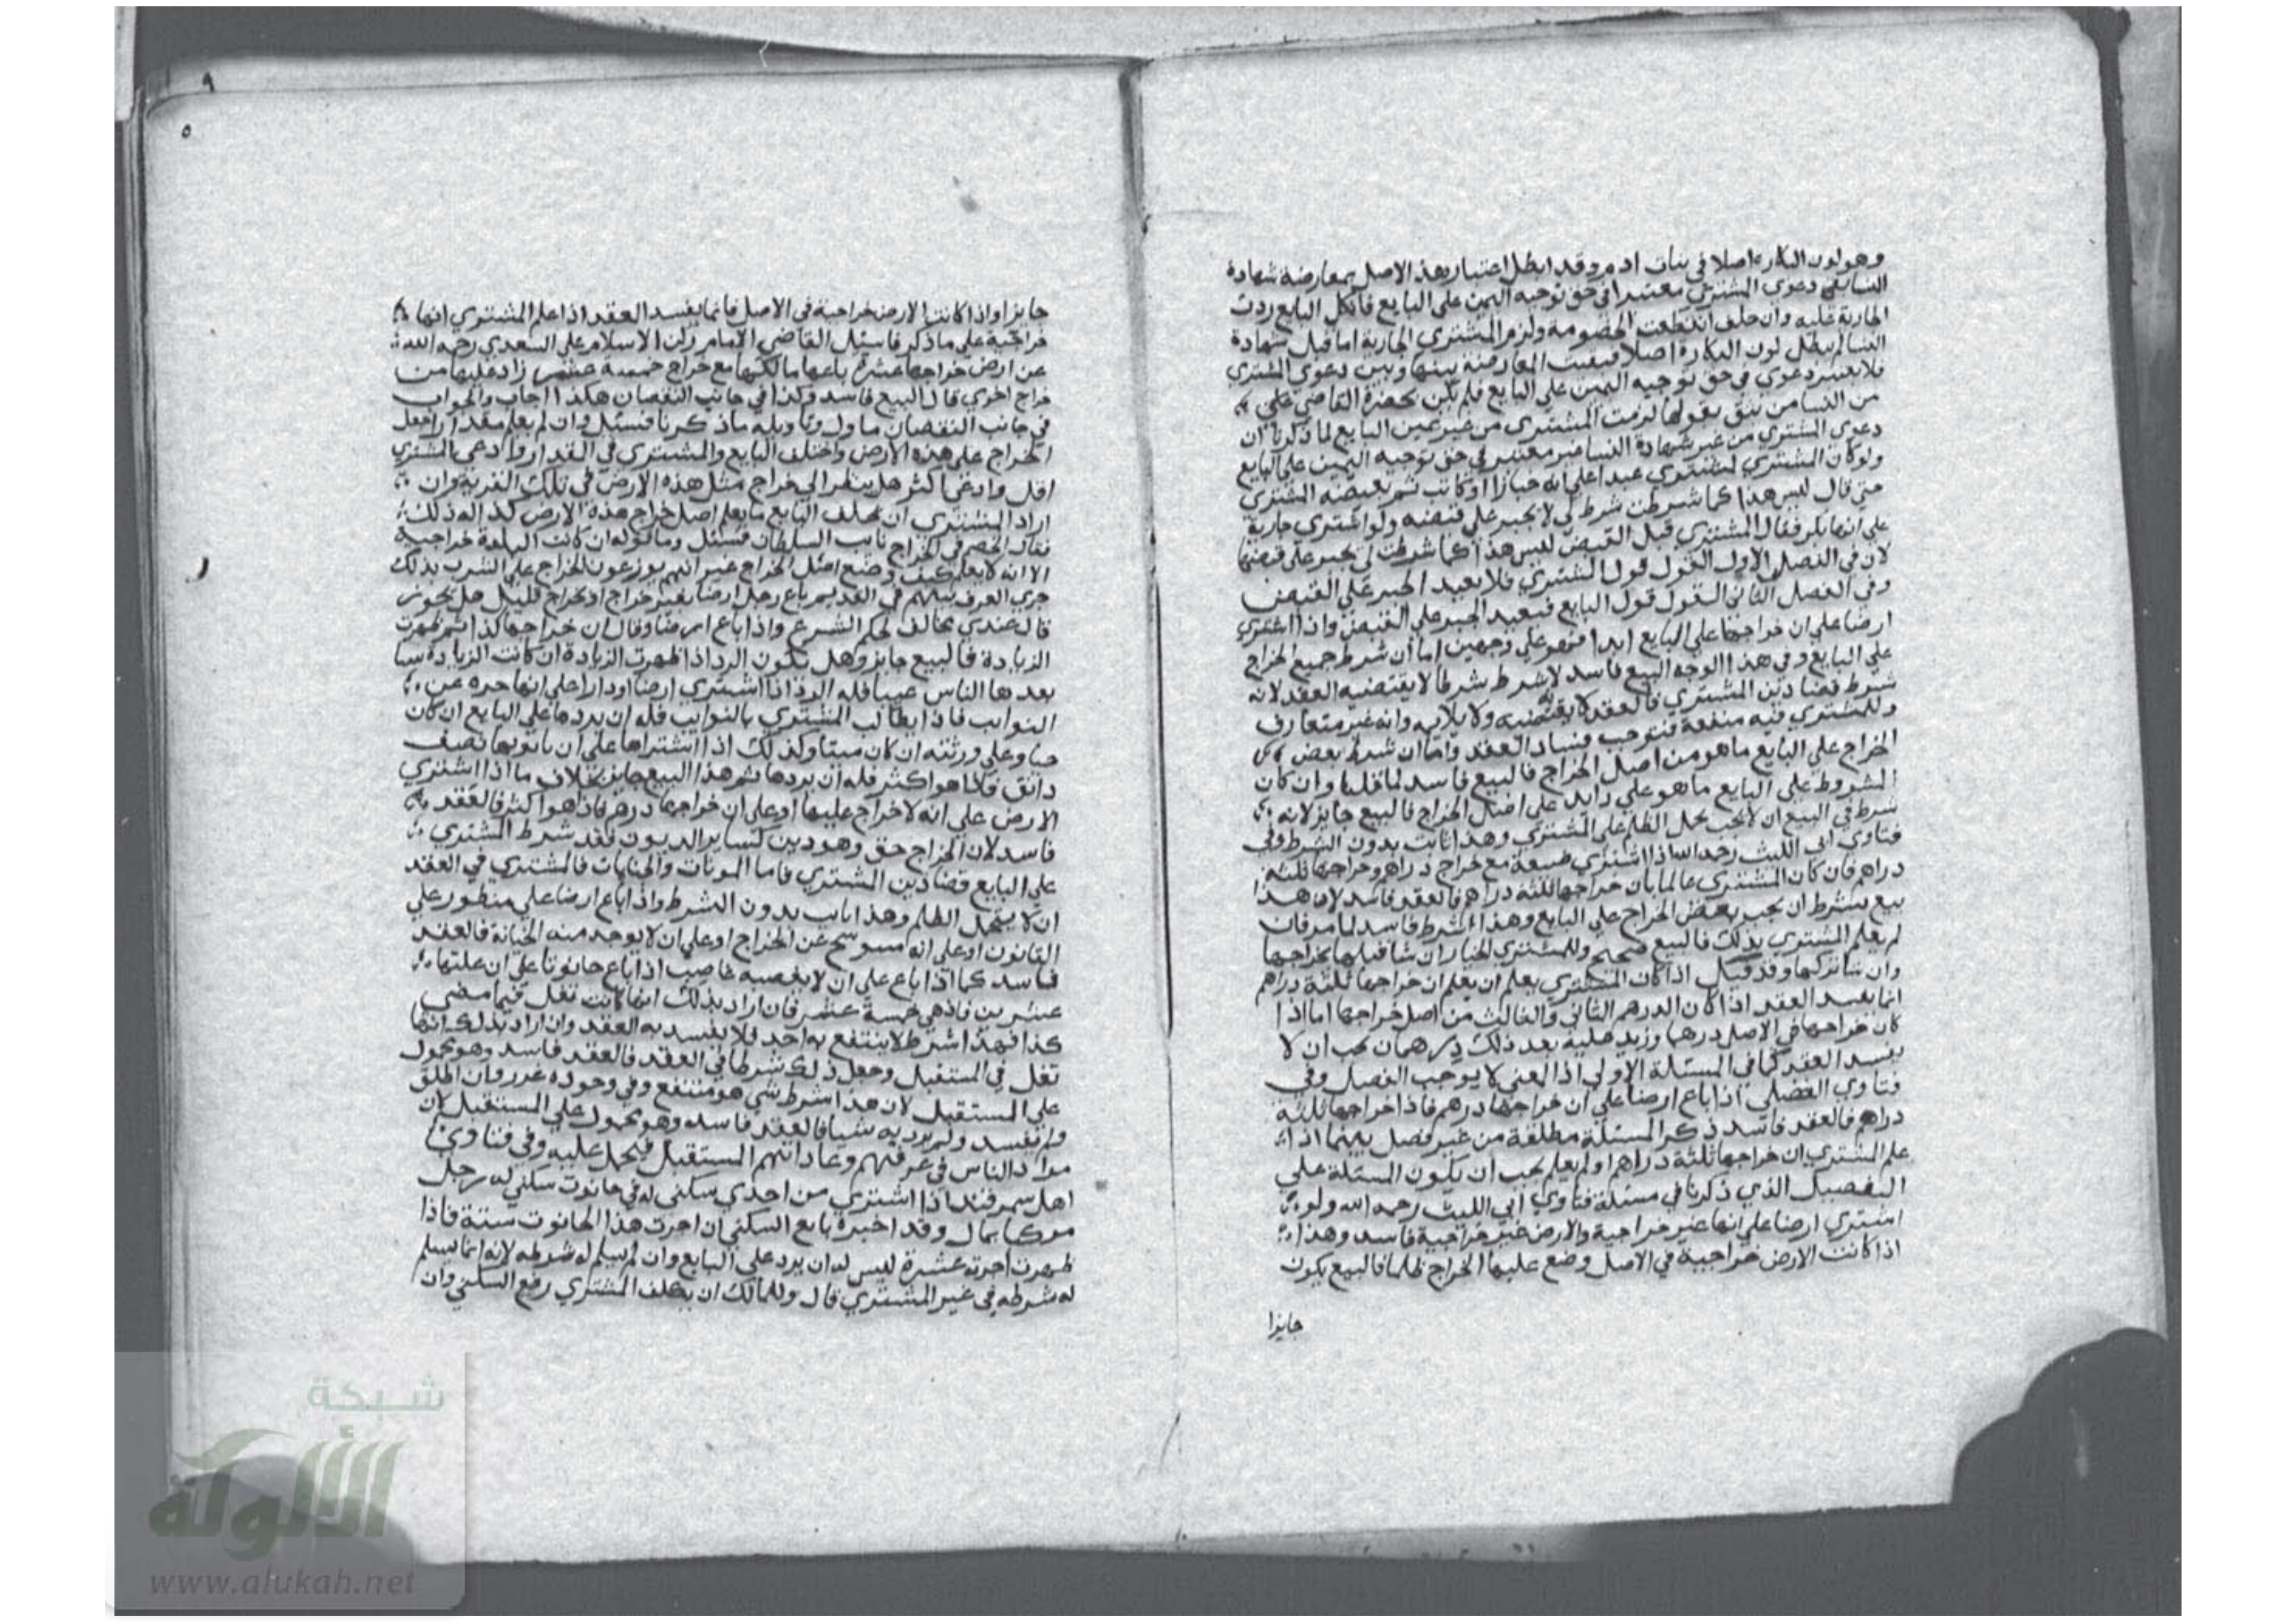 وهو لون البكارة اصلا في بنات ادم وقد ابطل اعتبار هذ الاصل بمعارضة شهادة
النسا بقي دعوي المشتري معتبرا في حق توجيه اليمين علي البايع فان نكل البايع ردت
الجارية عليه وان حلف انقطعت الخصومة ولزم المشتري الجارية اما قبل شهادة
النسا لم يبطل لون البكارة اصلا فبقيت المعارضة بينها وبين دعوي المشتري
فلا يعتبر دعوي في حق توجيه اليمين علي البايع فلم يكن بحضرة القاضي علي
من النسا من يثق بقولها لزمت المشتري من غير يمين البايع لما ذكرنا ان
دعوي المشتري من غير شهادة النسا غير معتبر في حق توجيه اليمين علي البايع
ولو كان المشتري اشتري عبدا علي انه خبازا او كاتب ثم يقبضه المشتري
حتي قال ليس هذا كما شرطت شرط لي لا يجبر علي قبضه ولو اشتري جارية
علي انها بكر فقال المشتري قبل القبض ليس هذا كما شرطت لي يجبر علي قبضها
لان في الفصل الاول القول قول المشتري فلا يعيد الجبر علي القبض
وفي الفصل الثاني القول قول البايع فيعيد الجبر علي القبض واذا اشتري
ارضا علي ان خراجها علي البايع ابدا فهو علي وجهين اما ان شرط جميع الخراج
علي البايع وفي هذا الوجه البيع فاسد لا شرط شرطا لا يقتضيه العقد لانه
شرط قضا دين المشتري فالعقد لا يقتضيه ولا يلايمه وانه غير متعارف
وللمشتري فيه منفعة فيوجب فساد العقد واما ان شرط بعض
الخراج علي البايع ما هو من اصل الخراج فالبيع فاسد لما قلنا وان كان
المشروط علي البايع ما هو علي زايد علي اصل الخراج فالبيع جايز لانه
شرط في البيع ان لا يجب يحمل الظلم علي المشتري وهذا ثابت بدون الشرط وفي
فتاوي ابي الليث رحمه الله اذا اشتري ضيعة مع خراج دراهم وخراجها ثلثة
دراهم فان كان المشتري عالما بان خراجها ثلثة دراهم فالعقد فاسد لان هذا
بيع بشرط ان يجب بعض الخراج علي البايع وهذا الشرط فاسد لما مر فان
لم يعلم المشتري بذلك فالبيع صحيح وللمشتري الخيار ان شا قبلها بخراجها
وان شا تركها وقد قيل اذا كان المشتري يعلم ان يعلم ان خراجها ثلثة دراهم
انما يفسد العقد اذا كان الدرهم الثاني والثالث من اصل خراجها اما اذا
كان خراجها في الاصل درهما وزيد عليه بعد ذلك درهمان يجب ان لا
يفسد العقد كما في المسئلة الاولي اذ المعني لا يوجب الفصل وفي
فتاوي الفضلي اذا باع ارضا علي ان خراجها درهم فاذا خراجها ثلثة
دراهم فالعقد فاسد ذكر المسئلة مطلقة من غير فصل بينما اذا
علم المشتري ان خراجها ثلثة دراهم او لم يعلم يجب ان يكون المسئلة علي
التفصيل الذي ذكرنا في مسئلة فتاوي ابي الليث رحمه الله ولو
اشتري ارضا علي انها غير خراجية والارض غير خراجية فاسد وهذا
اذا كانت الارض خراجية في الاصل وضع عليها الخراج ظلما فالبيع يكون
جايزا
٩
٥
جايزا واذا كانت الارض خراجية في الاصل فانما يفسد العقد اذا علم المشتري انها
خراجية علي ما ذكر فاسئل القاضي الامام ركن الاسلام علي السعدي رحمه الله
عن ارض خراجها عشرة باعها مالكها مع خراج خمسة عشر زاد عليها من
خراج اخري قال البيع فاسد وكذا في جانب النقصان هكذا اجاب والجواب
في جانب النقصان ماول وتاويله ما ذكرنا فسئل وان لم يعلم مقدار اجعل
الخراج علي هذه الارض واختلف البايع والمشتري في المقدار وادعي المشتري
اقل وادعي اكثر هل ينظر الي خراج مثل هذه الارض في تلك القرية وان
اراد المشتري ان يحلف البايع ما يعلم اصل خراج هذه الارض كذا له ذلك
فقال الخصم في الخراج نايب السلطان فسئل وما قوله ان كانت البلدة خراجية
الا انه لا يعلم كيف وضع اصل الخراج غير انهم يوزعون الخراج علي الشرب بذلك
جري العرف بينهم في القديم باع رجل ارضا بغير خراج او بخراج قليل هل يجوز
قال عندي يخالف لحكم الشرع واذا باع ارضا وقال ان خراجها كذا ثم ظهرت
الزيادة فالبيع جايز وهل تكون الرد اذا ظهرت الزيادة ان كانت الزيادة شيا
يعدها الناس عيبا فله الرد اذا اشتري ارضا او دارا علي انها حرة عن
النوايب فاذا يطالب المشتري بالنوايب فله ان يردها علي البايع ان كان
حيا وعلي ورثته ان كان ميتا وكذلك اذا اشتراها علي ان نايبها نصف
دانق فاذا هو اكثر فله ان يردها ثم هذا البيع جايز بخلاف ما اذا اشتري
الارض علي انه لا خراج عليها او علي ان خراجها درهم فاذا هو اكثر فالعقد
فاسد لان الخراج حق وهو دين كساير الديون فقد شرط المشتري
علي البايع قضا دين المشتري فاما المونات والجنايات فالمشتري في العقد
ان لا يتحمل الظلم وهذا ثابت بدون الشرط واذا باع ارضا علي منظور علي
القانون او علي انه مسوسح عن الخراج او علي ان لا يوجد منه الخيانة فالعقد
فاسد كما اذا باع علي ان لا يغصبه غاصب اذا باع حانوتا علي ان غلتها
عشرين فاذ هي خمسة عشر فان اراد بذلك انها كانت تغل فيما مضي
كذا فهذا شرط لا ينتفع به احد فلا يفسد به العقد وان اراد بذلك انها
تغل في المستقبل وجعل ذلك شرطا في العقد فالعقد فاسد وهو محمول
علي المستقبل لان هذا شرط شي هو منتفع وفي وجوده غرر وان اطلق
ولم يفسد ولم يرد به شيا فالعقد فاسد وهو محمول علي المستقبل لان
مراد الناس في عرفهم وعاداتهم المستقبل فيحمل عليه وفي فتاوي
اهل سمرقند اذا اشتري من احدي سكني له في حانوت سكني له رجل
مركبا بمال وقد اخبره بايع السكني ان اجرت هذا الحانوت ستة فاذا
ظهرت اجرته عشرة ليس له ان يرد علي البايع وان لم يسلم له شرطه لانه انما يسلم
له شرطه في غير المشتري قال وللمالك ان يكلف المشتري رفع السكني وان
شبكة
الألوكة
www.alukah.net